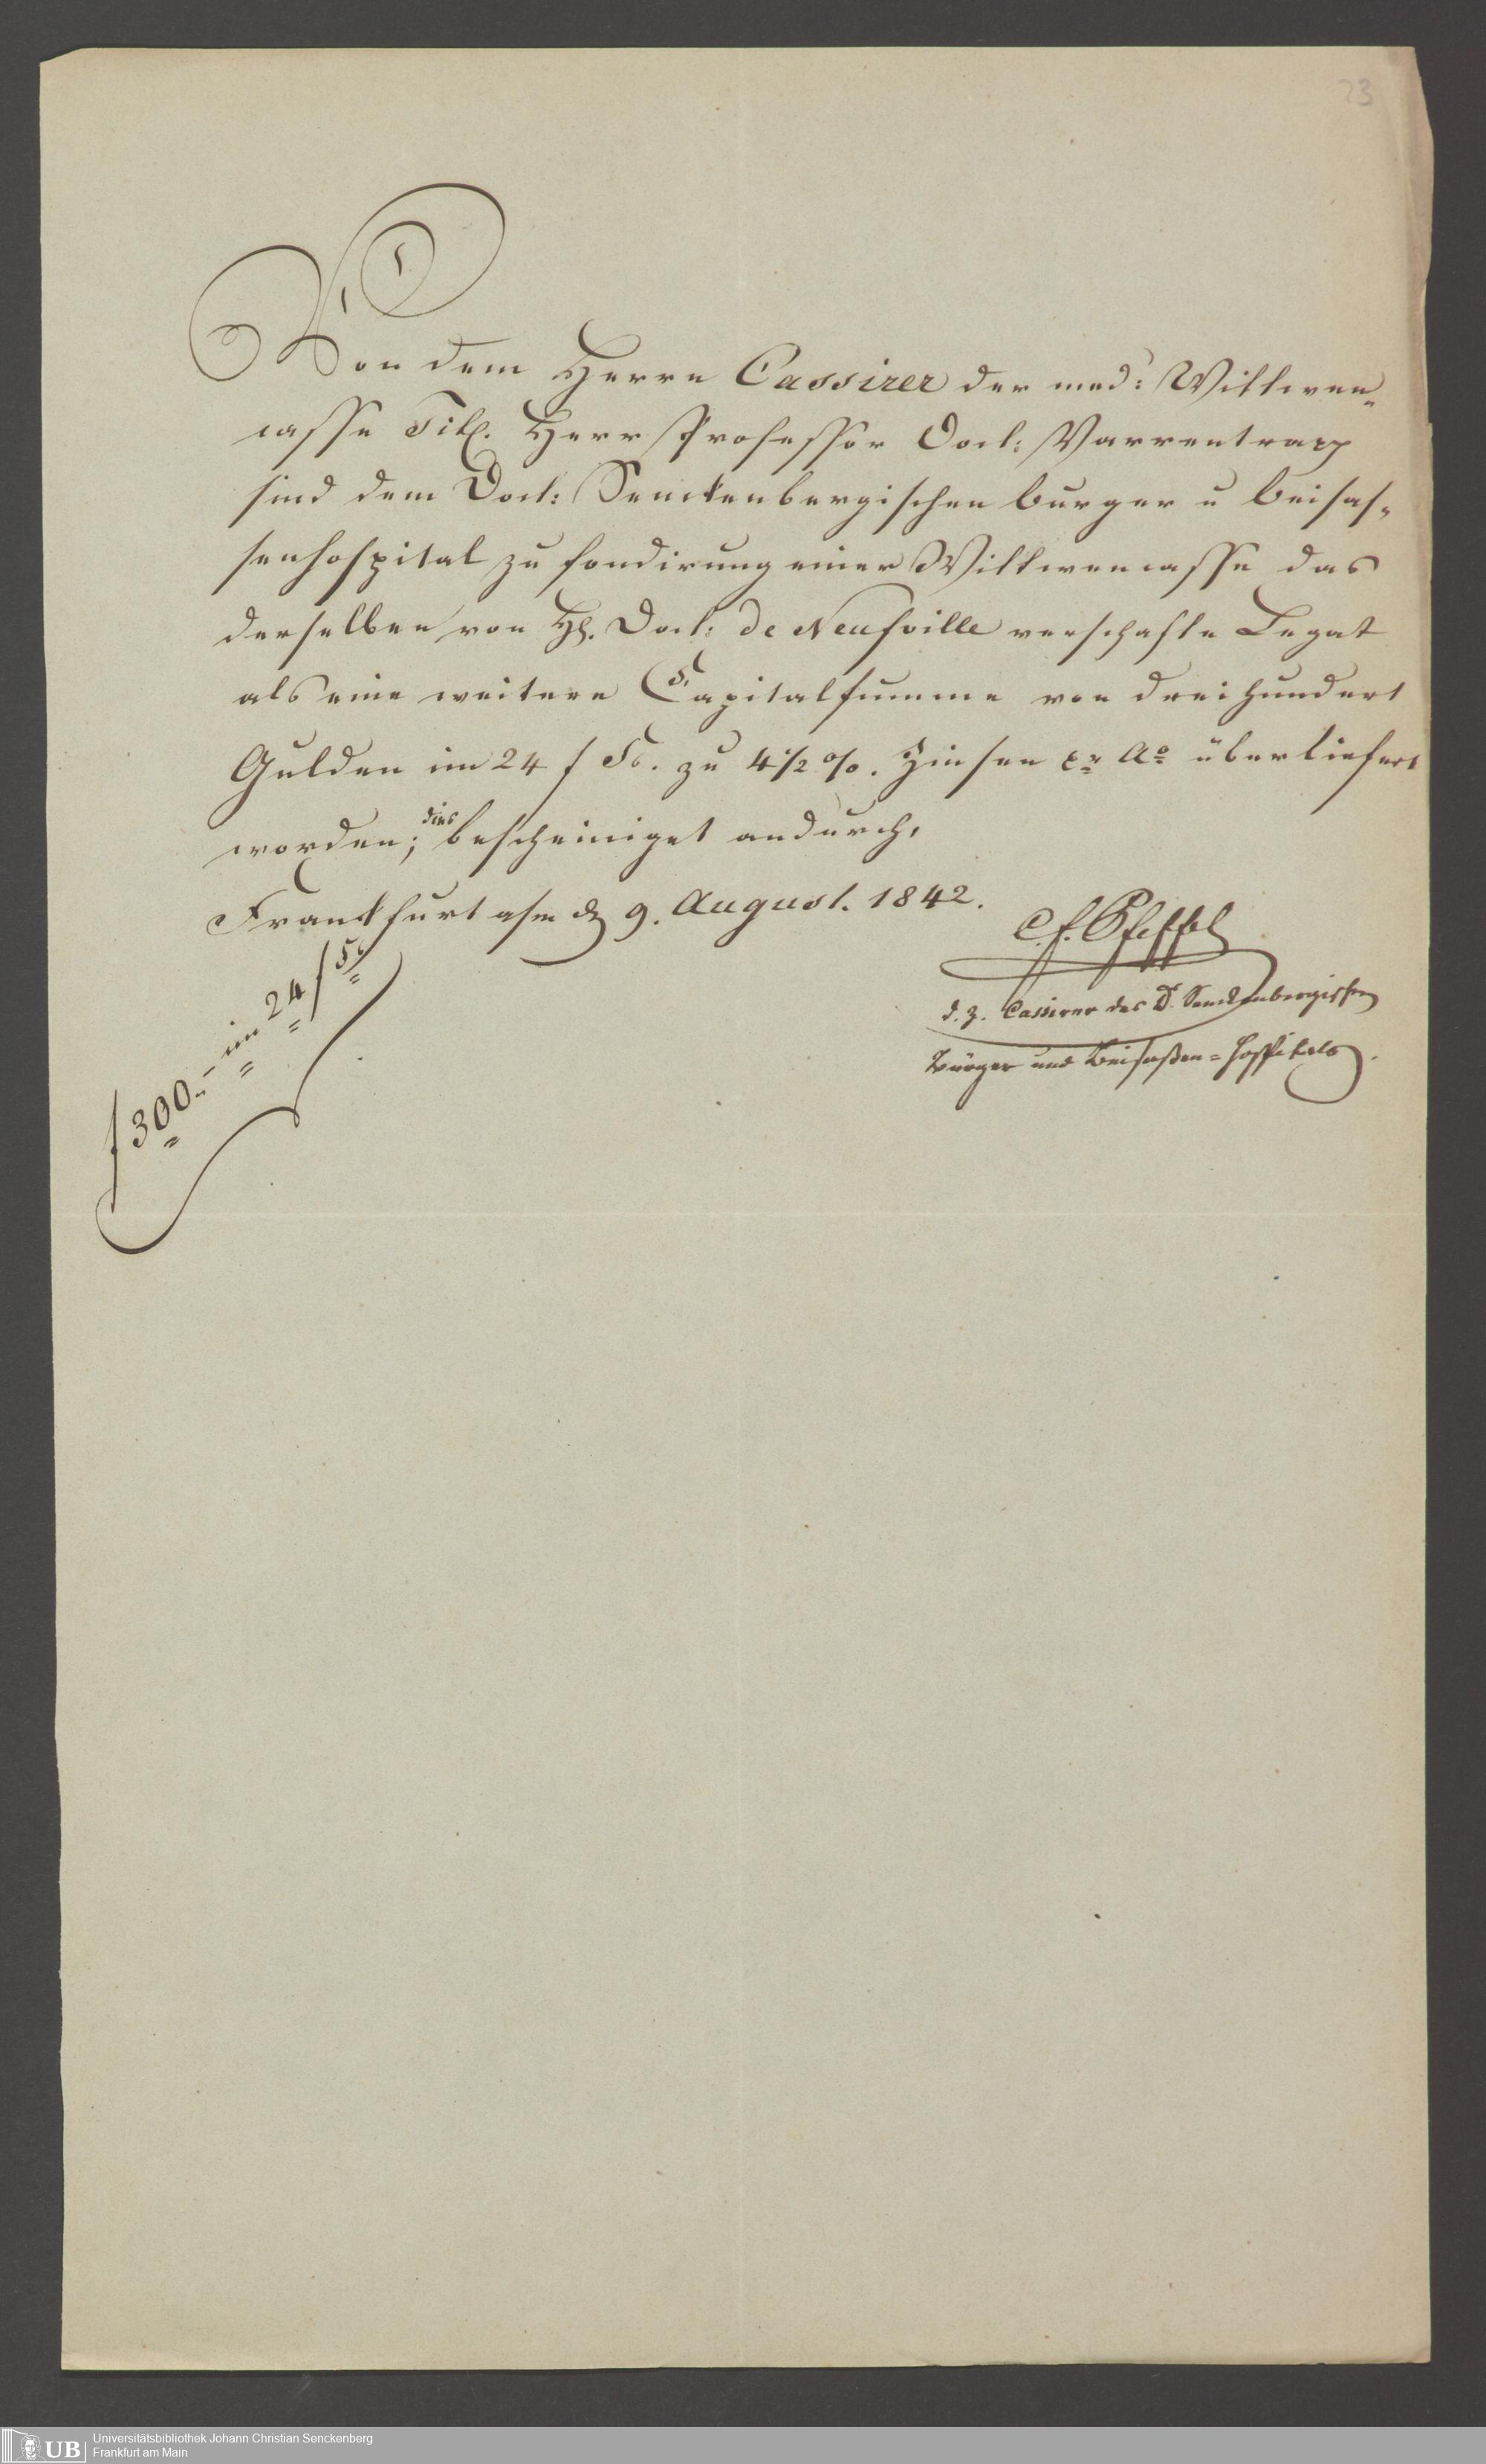 23
Von dem Herrn Cassirer der med: Wittwen=
casse Tit. Herr Professor Doct: Varrentrapp
sind dem Doct: Senckenbergischen burger u beisas=
senhospital zu fondirung einer Wittwencasse das
derselben von H. Doct: de Neufville verschafte Legat
als eine weitere Capitalsumme von dreihundert
Gulden im 24 f Fs. zu 4 1/2 %. Zinsen pr Ao überliefert
worden; dies bescheiniget andurch,
Franckfurt a/m d 9. August. 1842.
C. F. Pfeffel
d. z. Cassirer des Dr. Senckenbergischen
Bürger und Beisaßen=Hospitals.
f 300.- im 24 f Fs
UB Universitätsbibliothek Johann Christian Senckenberg
Frankfurt am Main